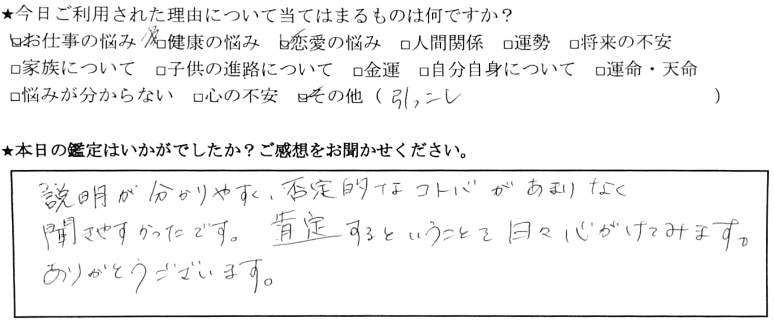 ★今日ご利用された理由について当てはまるものは何ですか？
☑お仕事の悩み □健康の悩み ☑恋愛の悩み □人間関係 □運勢 □将来の不安
□家族について □子供の進路について □金運 □自分自身について □運命・天命
□悩みが分からない □心の不安 ☑その他（引っこし）
★本日の鑑定はいかがでしたか？ご感想をお聞かせください。
説明が分かりやすく、否定的なコトバがあまりなく
聞きやすかったです。肯定するということを日々心がけてみます。
ありがとうございます。